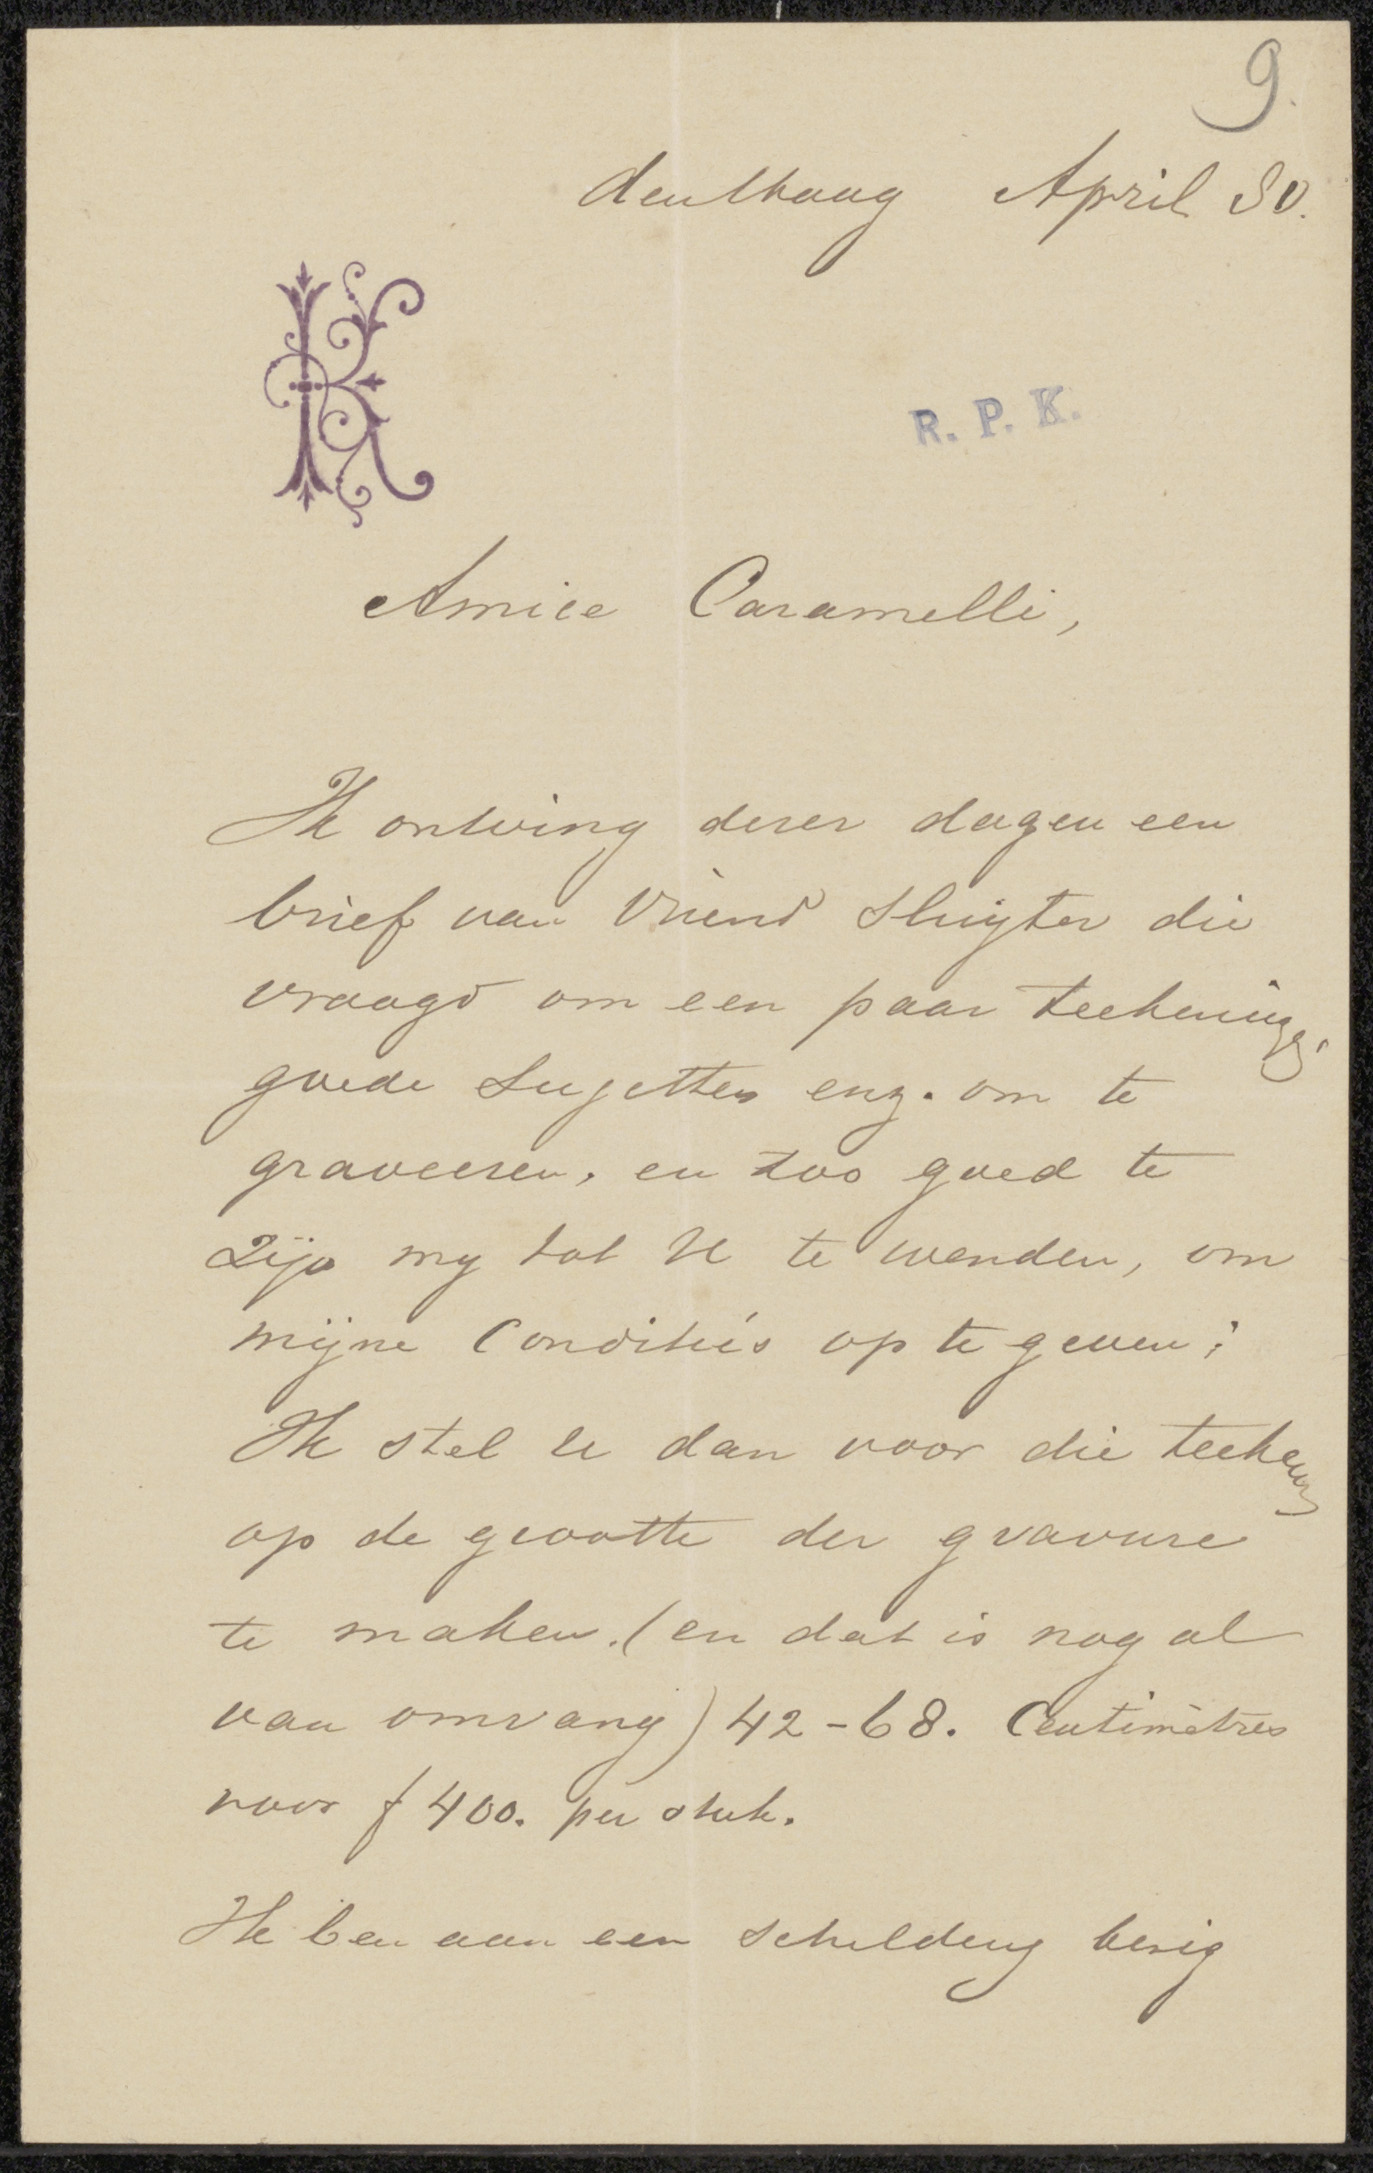 9.
den Haag April 80.
K
R. P. K.
Amice Caramelli,
Ik ontving dezer dagen een
brief van Vriend Sluyter die
vraagd om een paar teekening:
goede sujetten enz. om te
graveeren, en zoo goed te
zijn my tot U te wenden, om
mijne Conditiés op te geven;
Ik stel U dan voor die teekening
op de grootte der gravure
te maken. (en dat is nog al
van omvang) 42-68. Centimètres
voor f 400. per stuk.
Ik ben aan een schilderij bezig